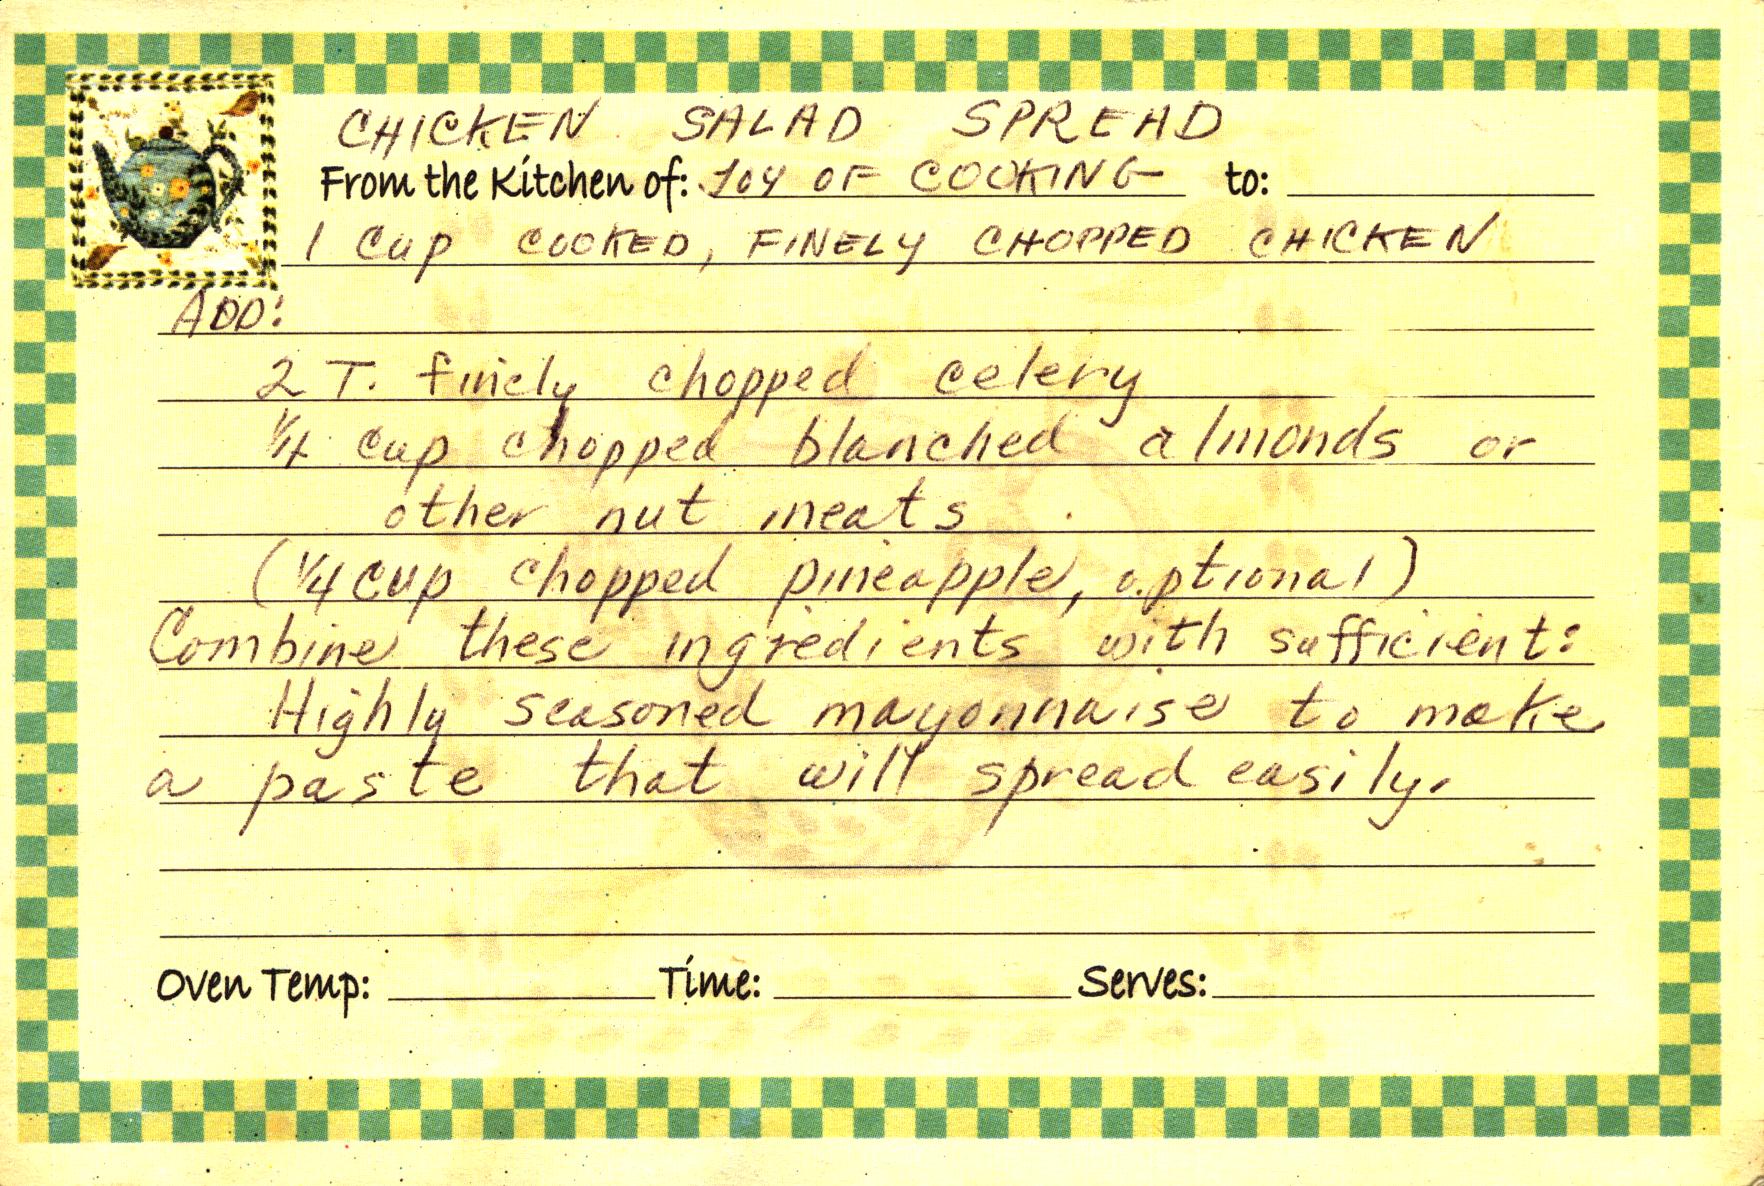 CHICKEN SALAD SPREAD
From the Kitchen of: JOY OF COOKING to:
1 Cup COOKED, FINELY CHOPPED CHICKEN
ADD:
2 T. finely chopped celery
1/4 cup chopped blanched almonds or
other nut meats
(1/4 cup chopped pineapple, optional)
Combine these ingredients with sufficient:
Highly seasoned mayonnaise to make
a paste that will spread easily.
Oven Temp: Time: Serves: